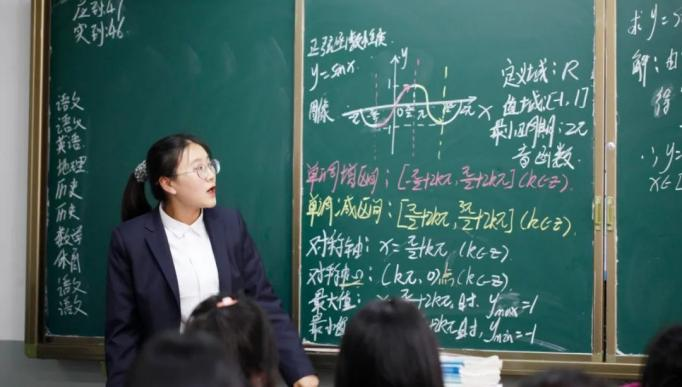 应到:41
实到:46
语文
语文
英语
地理
历史
历史
数学
体育
语文
语文
正弦函数性质
y=sinx
图像
y
0
π
2π
x
定义域:R
值域:[-1,1]
最小正周期:2π
奇函数
单调增区间:[-π/2+2kπ,π/2+2kπ](k∈z)
单调减区间:[π/2+2kπ,3π/2+2kπ](k∈z)
对称轴:x=π/2+kπ(k∈z)
对称中心:(kπ,0)点(k∈z)
最大值:x=π/2+2kπ时,ymax=1
最小值:x=-π/2+2kπ时,ymin=-1
求y=
解:由
得
∴y=
x∈